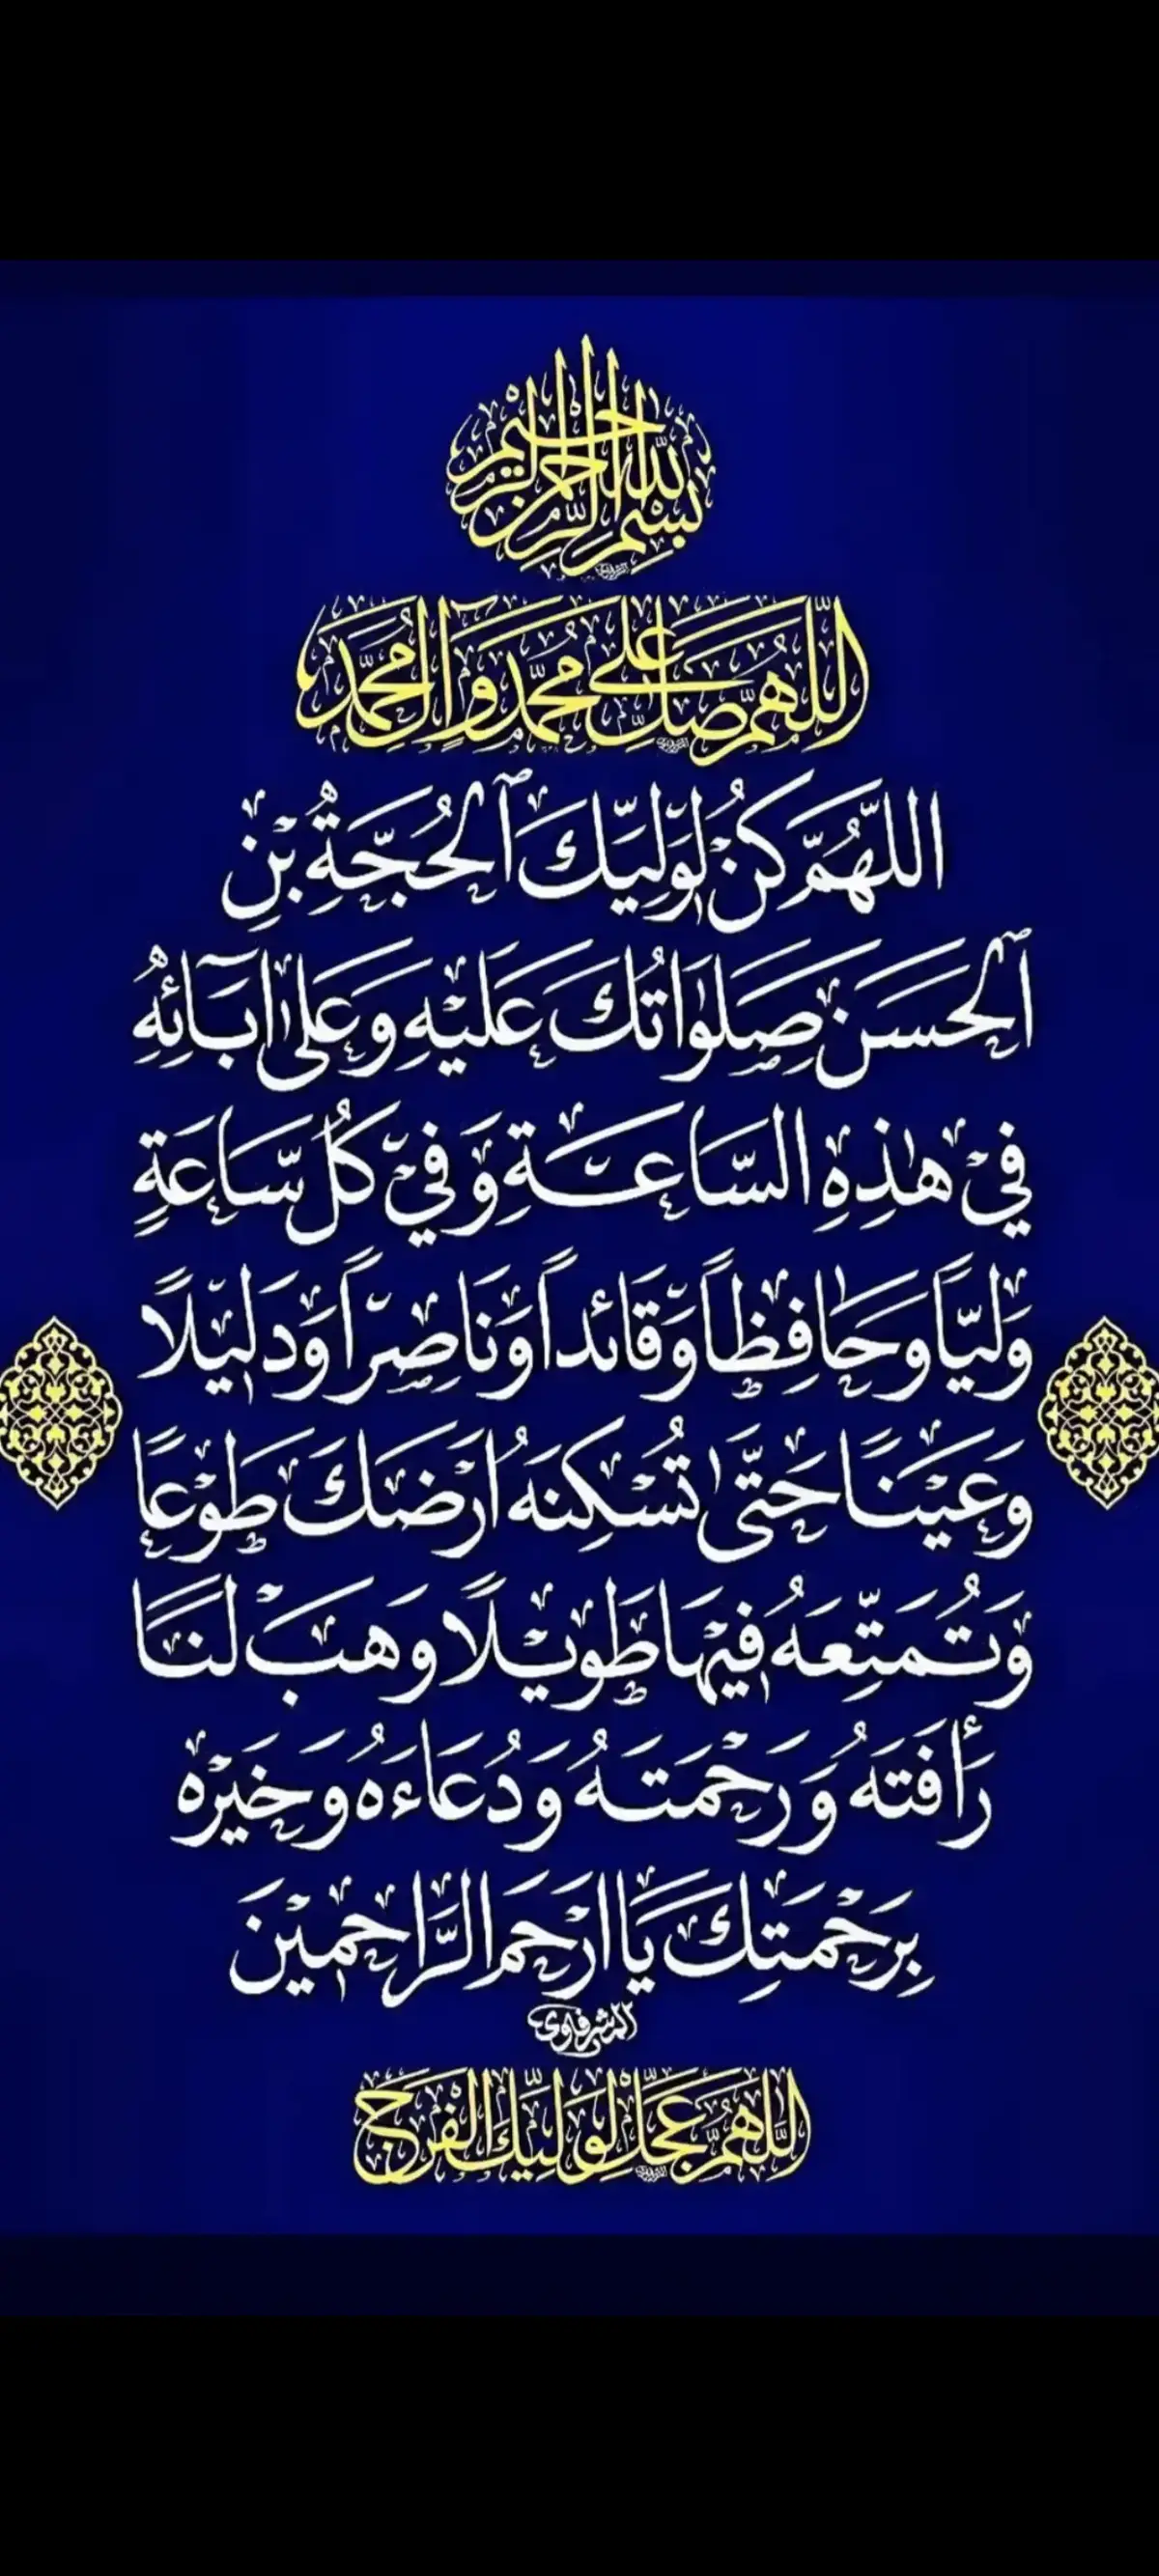 بسم الله الرحمن الرحيم
اللّٰهُمَّ صَلِّ عَلَى مُحَمَّدٍ وَآلِ مُحَمَّد
اللّهُمَّ كُنْ لِوَلِيِّكَ ٱلْحُجَّةِ بْنِ
ٱلْحَسَنِ صَلَوَاتُكَ عَلَيْهِ وَعَلىٰ ابَآئِهِ
فِيْ هٰذِهِ السَّاعَةِ وَفِيْ كُلِّ سَاعَةٍ
وَلِيًّا وَحَافِظاً وَقَائداً وَنَاصِراً وَدَلِيْلًا
وَعَيْنًا حَتَّىٰ تُسْكِنَهُ ارْضَكَ طَوْعًا
وَتُمَتِّعَهُ فِيْهَا طَوِيْلًا وَهَبْ لَنَا
رَأفَتَهُ وَرَحْمَتَهُ وَدُعَاءَهُ وَخَيْرَه
بِرَحْمَتِكَ يَا ارْحَمَ الرَّاحِمِيْنَ
المشرفاوي
اللَّهُمَّ عَجِّلْ لِوَلِيِّكَ الْفَرَجَ